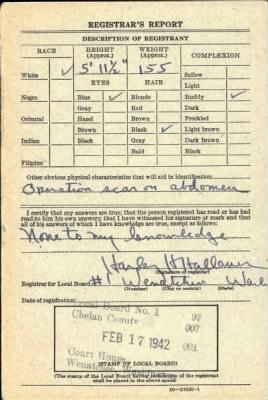 REGISTRAR'S REPORT
DESCRIPTION OF REGISTRANT
RACE
HEIGHT
(Approx.)
WEIGHT
(Approx.)
COMPLEXION
White
5' 11½"
155
Sallow
EYES
HAIR
Light
Negro
Blue
Blonde
Ruddy
Gray
Red
Dark
Oriental
Hazel
Brown
Freckled
Brown
Black
Light brown
Indian
Black
Gray
Dark brown
Bald
Black
Filipino
Other obvious physical characteristics that will aid in identification
Operation scar on abdomen
I certify that my answers are true; that the person registered has read or has had
read to him his own answers; that I have witnessed his signature or mark and that
all of his answers of which I have knowledge are true, except as follows:
None to my knowledge
(Signature of registrar)
Registrar for Local Board #1 Wenatchee
(Number) (City or county) (State)
Date of registration
Local Board No. 1 97
Chelan County 007
FEB 17 1942 001
Court House
(STAMP OF LOCAL BOARD)
(The stamp of the Local Board having jurisdiction of the registrant
shall be placed in the above space)